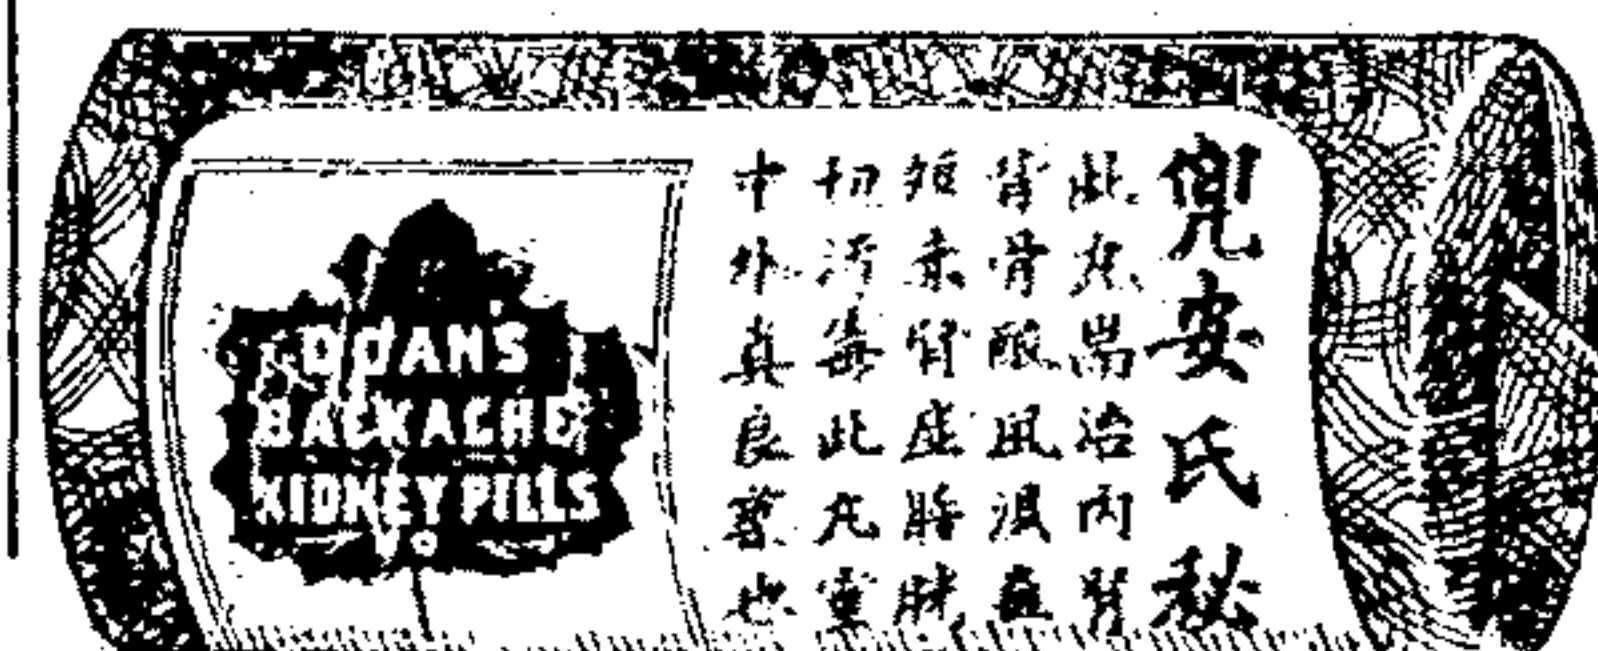 DOAN'S
BACKACHE
KIDNEY PILLS
兜安氏秘
此丸耑治內腎
背骨酸風濕
短赤腎膀胱
切污毒此丸
中外真良藥也